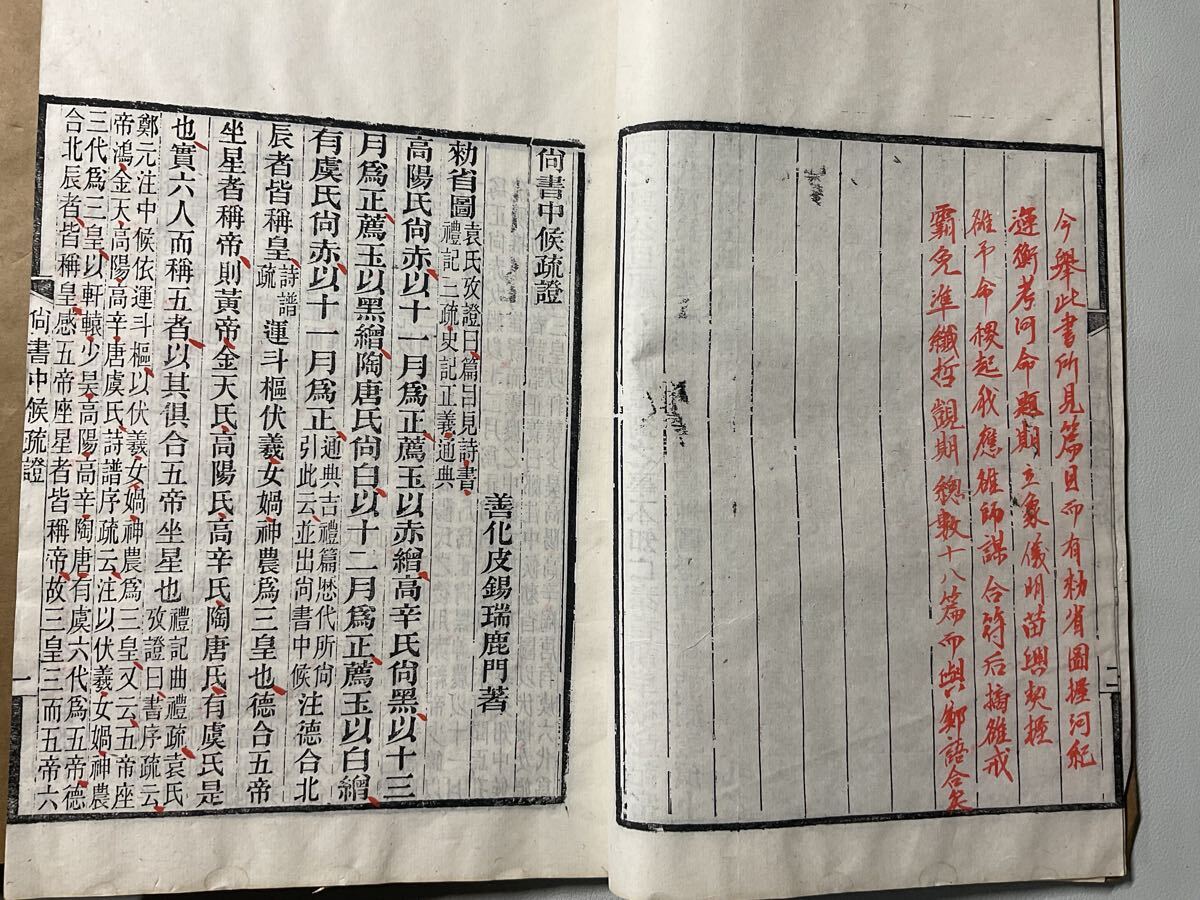 今舉此書所見篇目而有勑省圖握河紀
運衡考河命題期立象儀明苗興契握
雒予命稷起我應雒師謀合符后摘雒戒
霸免準纖哲覿期總數十八篇而與鄭語合矣
二
尙書中候疏證
善化皮錫瑞鹿門著
勑省圖袁氏攷證曰篇目見詩書禮記二疏史記正義通典
高陽氏尙赤以十一月爲正薦玉以赤繒高辛氏尙黑以十三
月爲正薦玉以黑繒陶唐氏尙白以十二月爲正薦玉以白繒
有虞氏尙赤以十一月爲正通典吉禮篇歷代所尙引此云並出尙書中候注德合北
辰者皆稱皇詩譜疏運斗樞伏羲女媧神農爲三皇也德合五帝
坐星者稱帝則黃帝金天氏高陽氏高辛氏陶唐氏有虞氏是
也實六人而稱五者以其俱合五帝坐星也禮記曲禮疏袁氏攷證曰書序疏云
鄭元注中候依運斗樞以伏羲女媧神農爲三皇又云五帝座
帝鴻金天高陽高辛唐虞氏詩譜序疏云注以伏羲女媧神農
三代爲三皇以軒轅少昊高陽高辛陶唐有虞六代爲五帝德
合北辰者皆稱皇感五帝座星者皆稱帝故三皇三而五帝六
尙書中候疏證
一